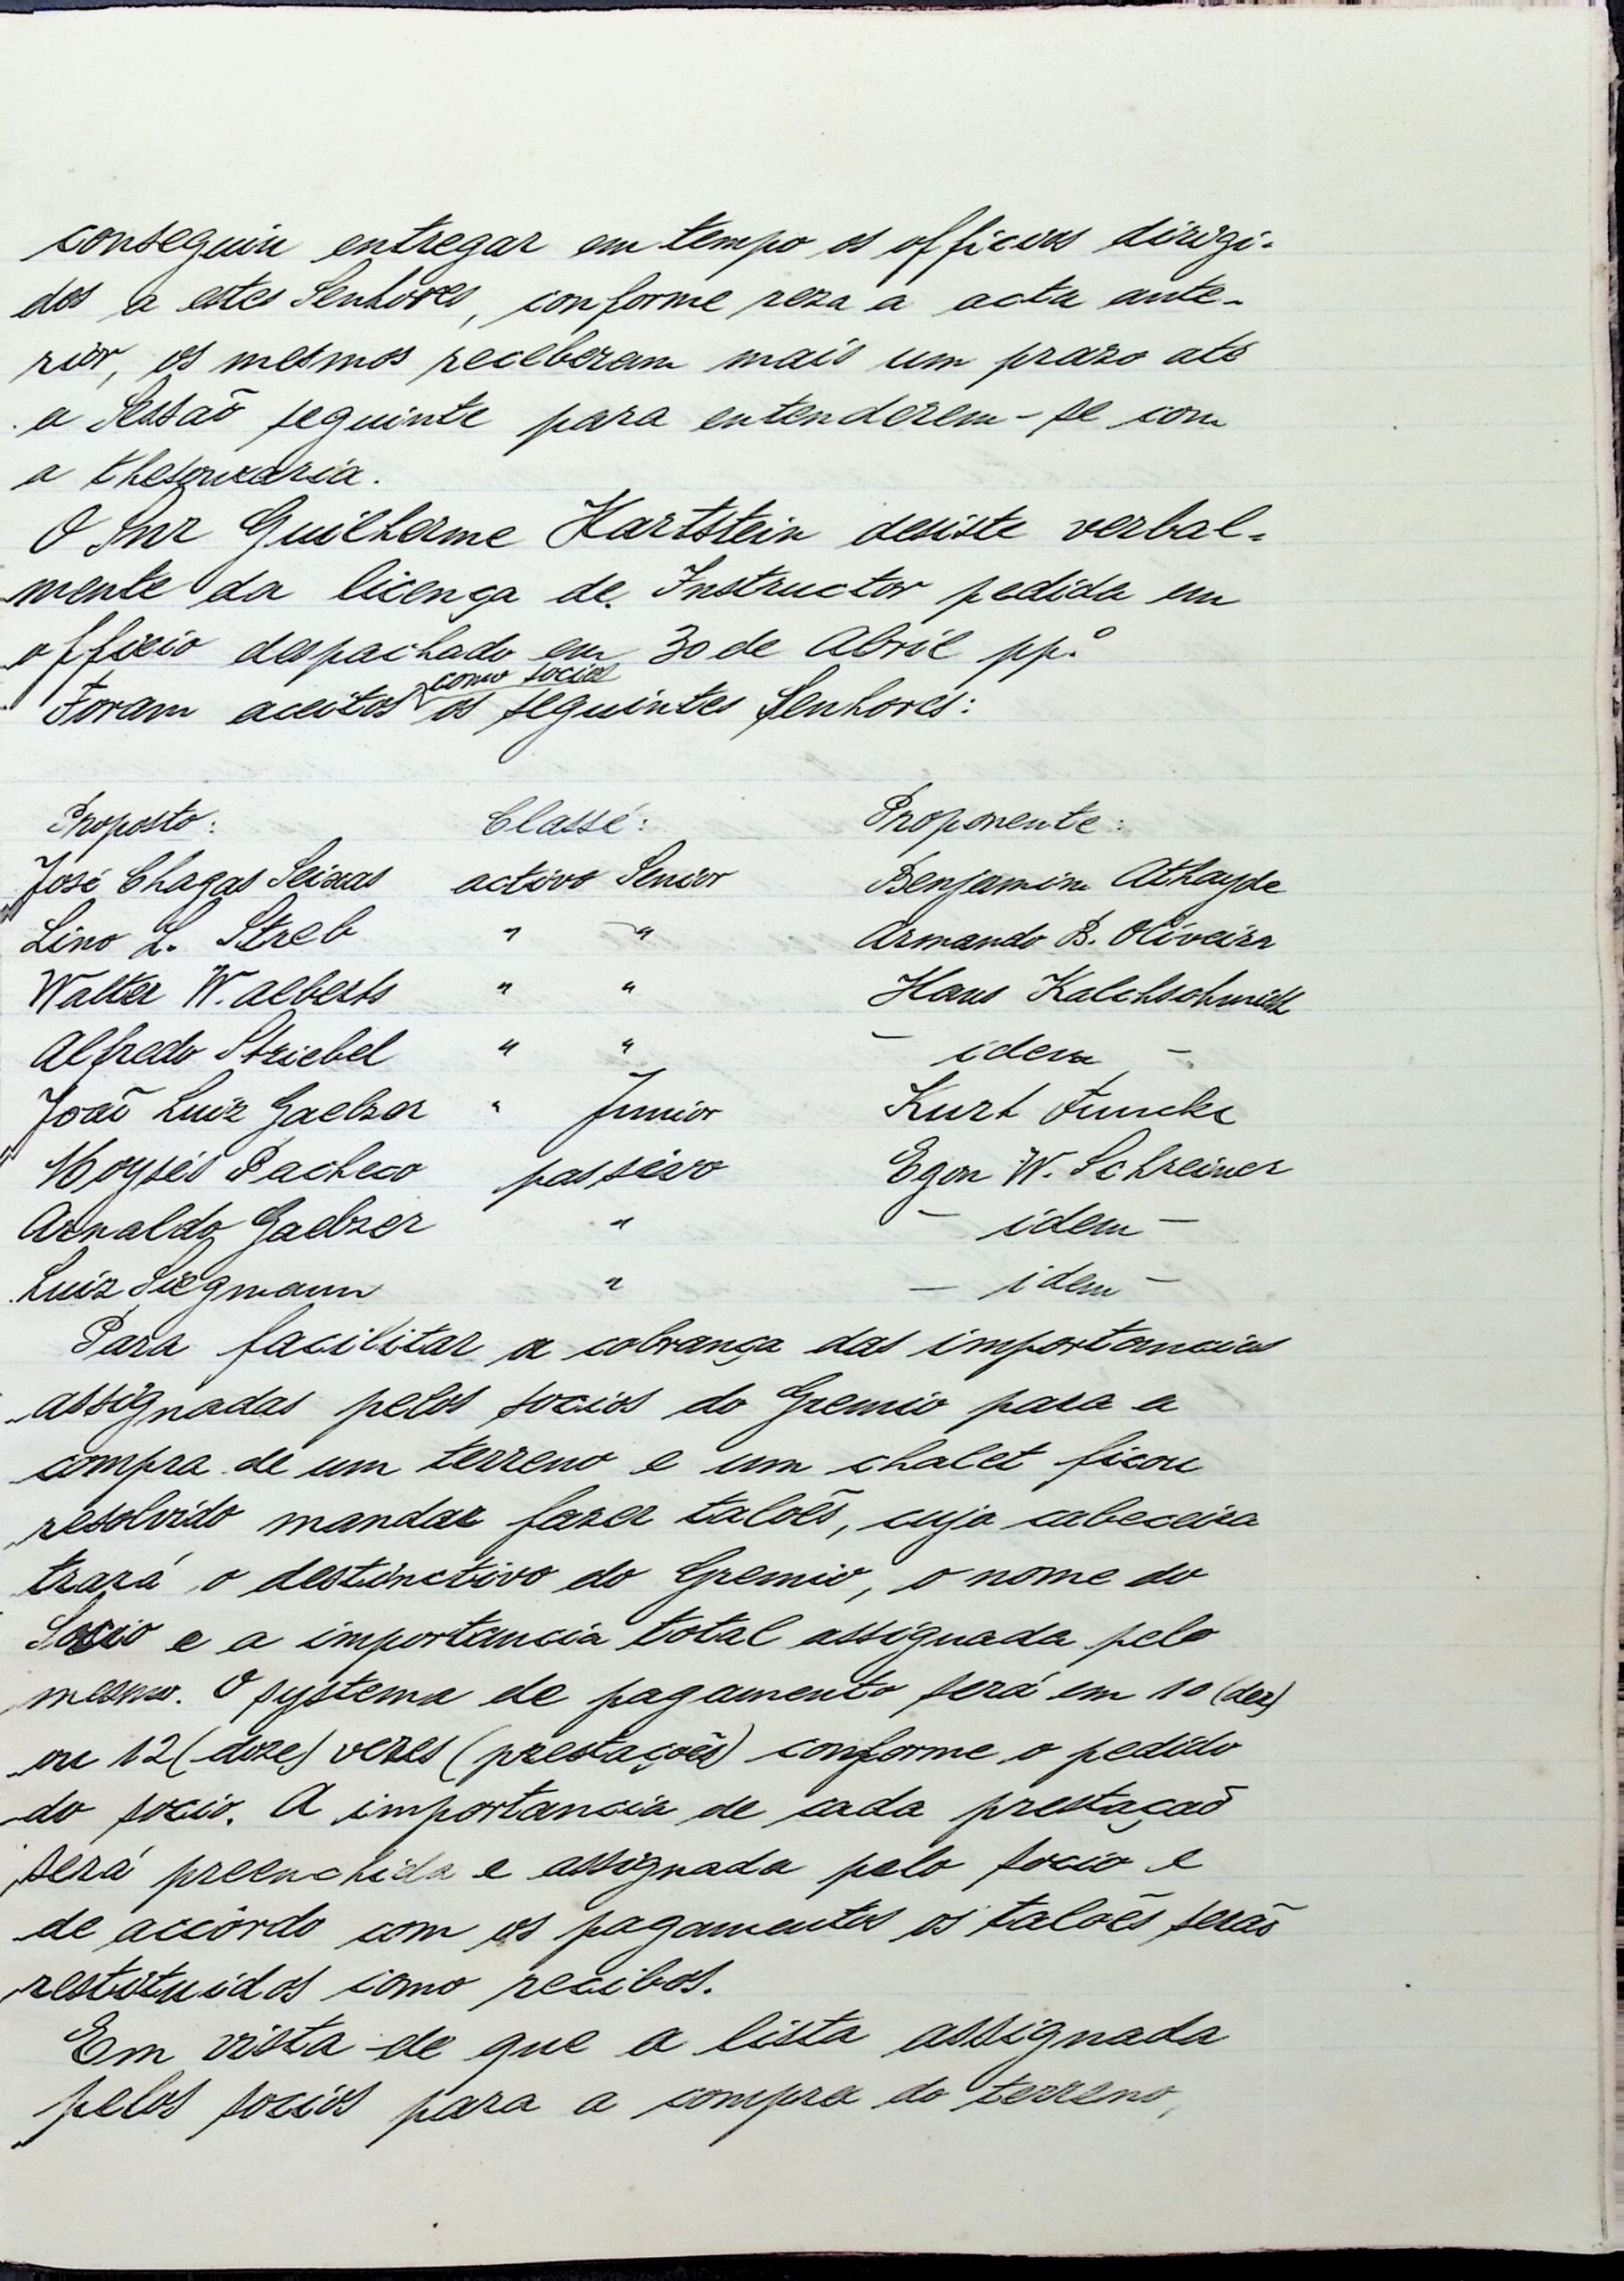 conseguiu entregar em tempo os officios dirigi-
dos a estes Senhores, conforme reza a acta ante-
rior, os mesmos receberam mais um prazo até
a Sessaõ seguinte para entenderem-se com
a thesouraria.
O Snr Guilherme Hartstein desiste verbal-
mente da licença de Instructor pedida em
officio despachado em 30 de Abril pp.º
como socios
Foram aceitos os seguintes Senhores:
Proposto: Classe: Proponente:
José Chagas Seixas activo Senior Benjamin Athayde
Lino L. Streb " " Armando B. Oliveira
Walter W. Alberts " " Hans Kalchschmidt
Alfredo Striebel " " - idem -
Joaõ Luiz Gaelzer " Junior Kurt Funcke
Moysés Pacheco passivo Egon W. Schreiner
Arnaldo Gaelzer " - idem -
Luiz Siegmann " - idem -
Para facilitar a cobrança das importancias
assignadas pelos socios do Gremio para a
compra de um terreno e um chalet ficou
resolvido mandar fazer taloẽs, cuja cabeceira
trará o destinctivo do Gremio, o nome do
Socio e a importancia total assignada pelo
mesmo. O systema de pagamento será em 10 (dez)
ou 12 (doze) vezes (prestaçoẽs) conforme o pedido
do socio. A importancia de cada prestaçaõ
será preenchida e assignada pelo socio e
de accôrdo com os pagamentos os taloẽs seraõ
restituidos como recibos.
Em vista de que a lista assignada
pelos socios para a compra do terreno,